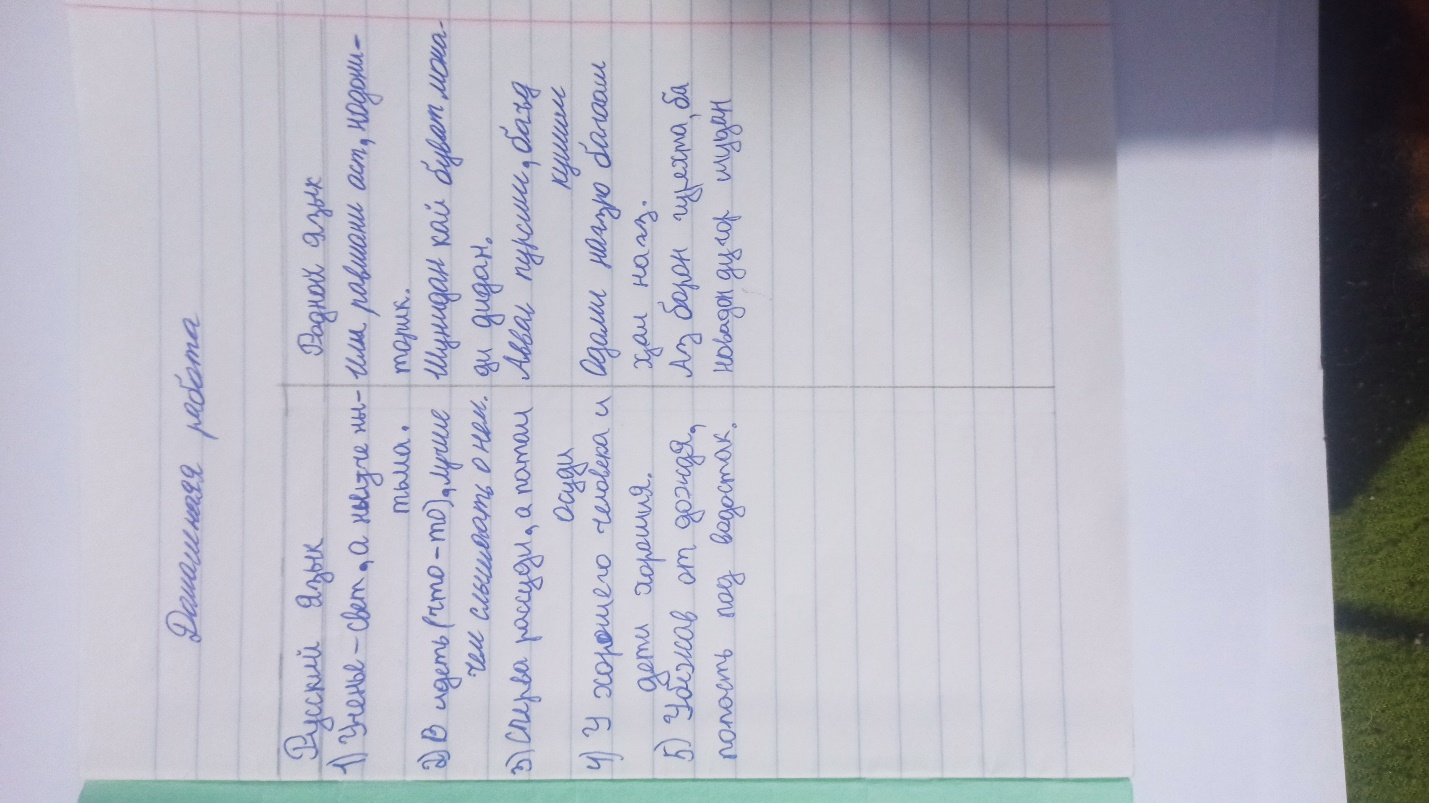 Домашняя работа
Русский язык
Родной язык
1) Ученье - свет, а неученье ны-
тьма.
Илм равшани аст, нодони-
торик.
2) В идеть (что-то), лучше
чем слышать о нем.
Шунидан кай буват мона-
ди дидан.
3) Сперва рассуди, а потом
осуди
Аввал пурсиш, баъд
кушиш
4) У хорошего человека и
дети хорошия.
Одами нағзро
хам нағз.
5) Убежав от дождя,
попость под водосток.
Аз борон гурехта, ба
новадон дучор шудан